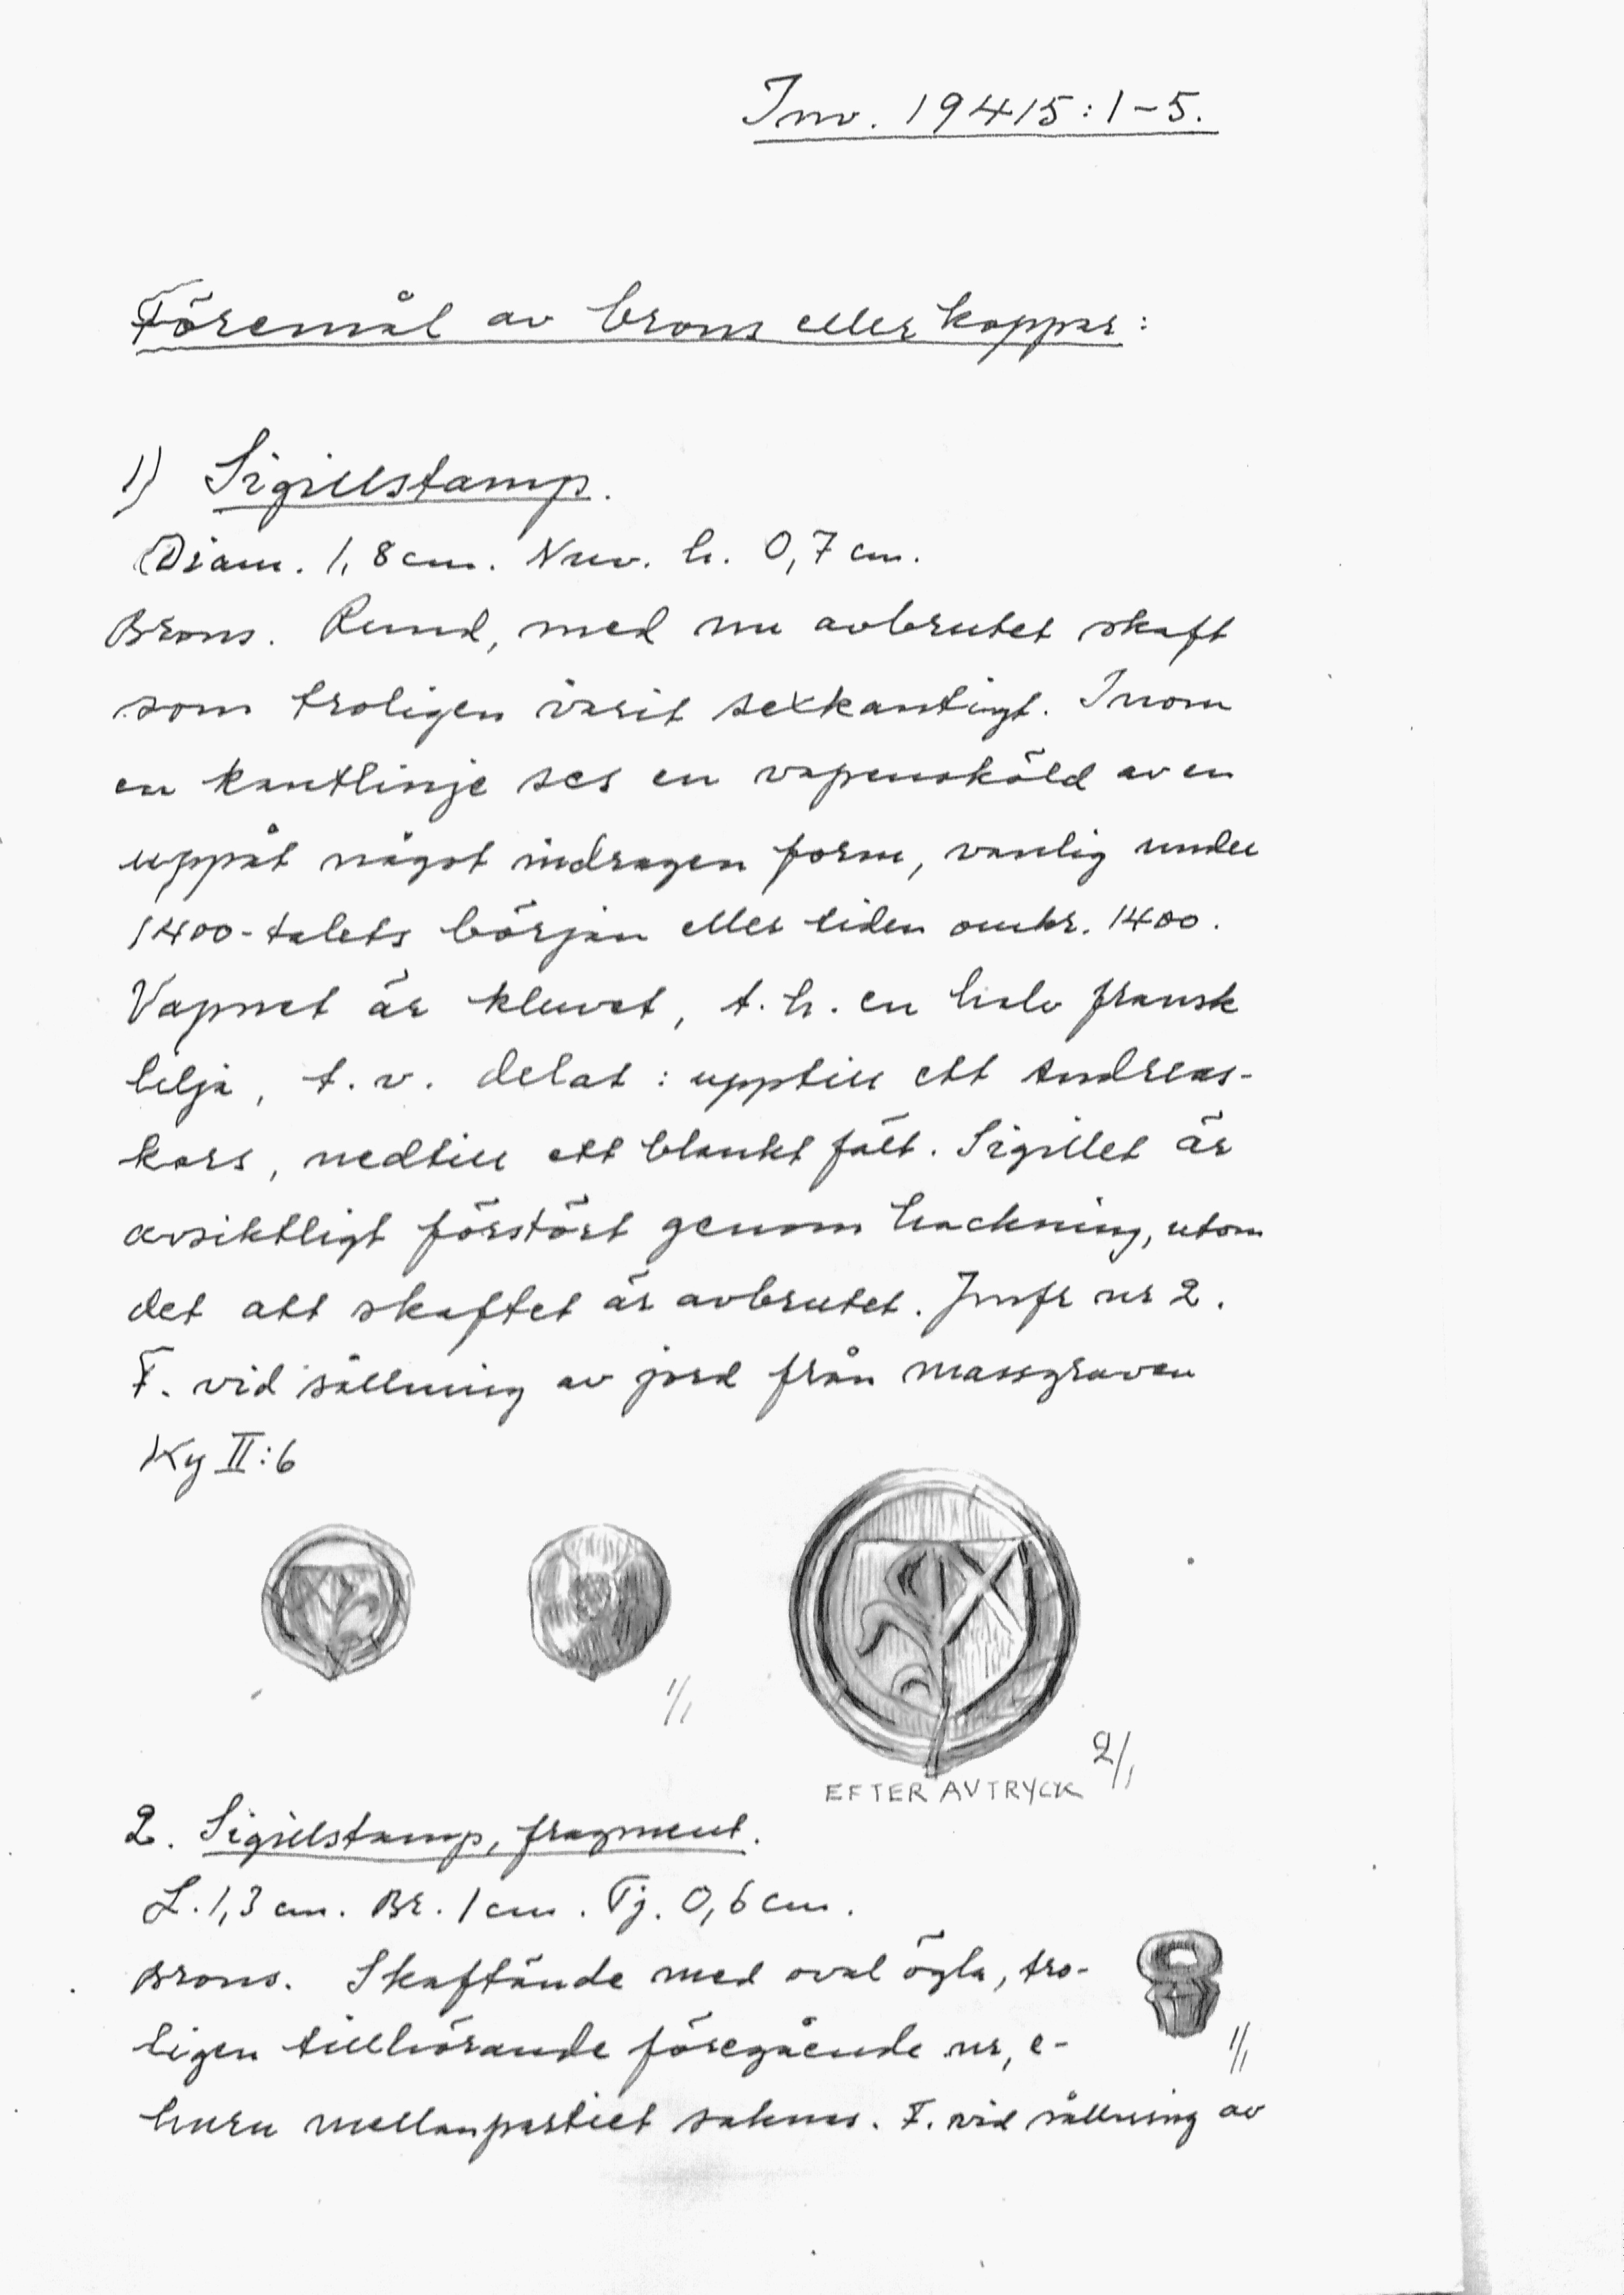 Inv. 19415:1-5.
Föremål av brons eller koppar:
1) Sigillstamp.
Diam. 1,8 cm. Nuv. h. 0,7 cm.
Brons. Rund, med nu avbrutet skaft
som troligen varit sexkantigt. Inom
en kantlinje ses en vapensköld av en
uppåt något indragen form, vanlig under
1400-talets början eller tiden omkr. 1400.
Vapnet är kluvet, t.h. en halv fransk
lilja, t.v. delat: upptill ett Andreas-
kors, nedtill ett blankt fält. Sigillet är
avsiktligt förstört genom hackning, utom
det att skaftet är avbrutet. Jmfr nr 2.
F. vid sållning av jord från massgraven
Ky II:6
1/1
2/1
EFTER AVTRYCK
2. Sigillstamp, fragment.
L. 1,3 cm. Br. 1 cm. Tj. 0,6 cm.
Brons. Skaftände med oval ögla, tro-
ligen tillhörande föregående nr, e-
huru mellanpartiet saknas. F. vid sållning av
1/1